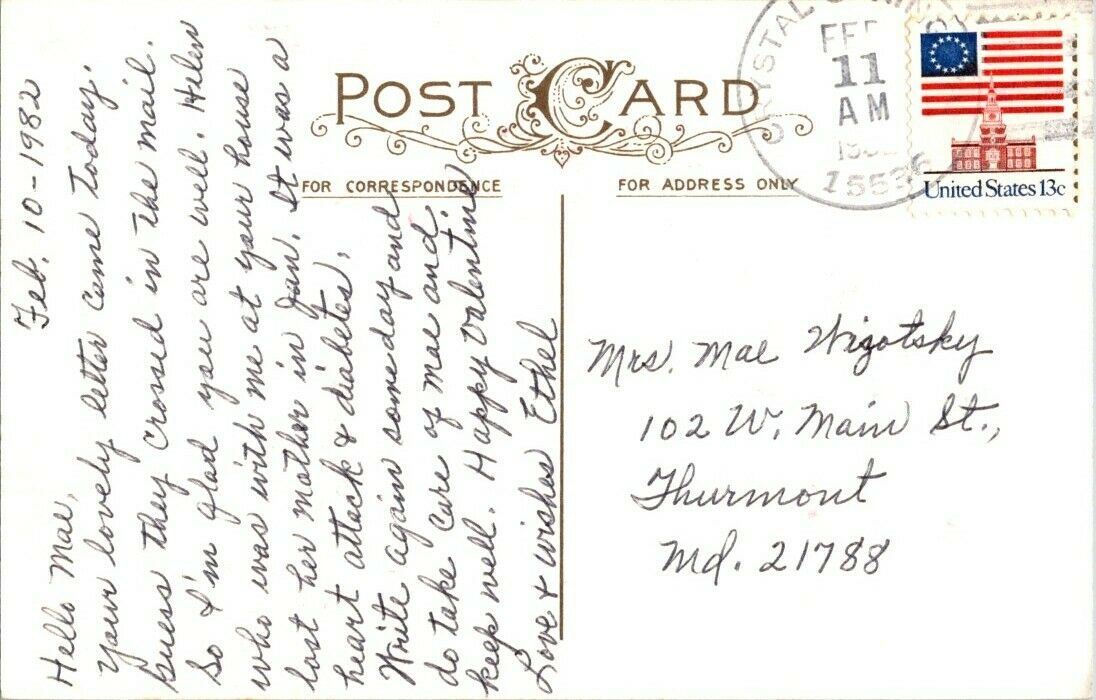 POST CARD
FOR CORRESPONDENCE
FOR ADDRESS ONLY
FEB
11
AM
15536
United States 13c
Feb. 10-1982
Hello Mae,
Your lovely letter came today.
Guess they crossd in the mail.
So I'm glad you are well. Helen
who was with me at your house
lost her mother in Jan. It was a
heart attack & diabetes.
Write again some day and
do take care of mae and
keep well. Happy Valentine
Love & wishes Ethel
Mrs. Mae Wigotsky
102 W. Main St.,
Thurmont
Md. 21788